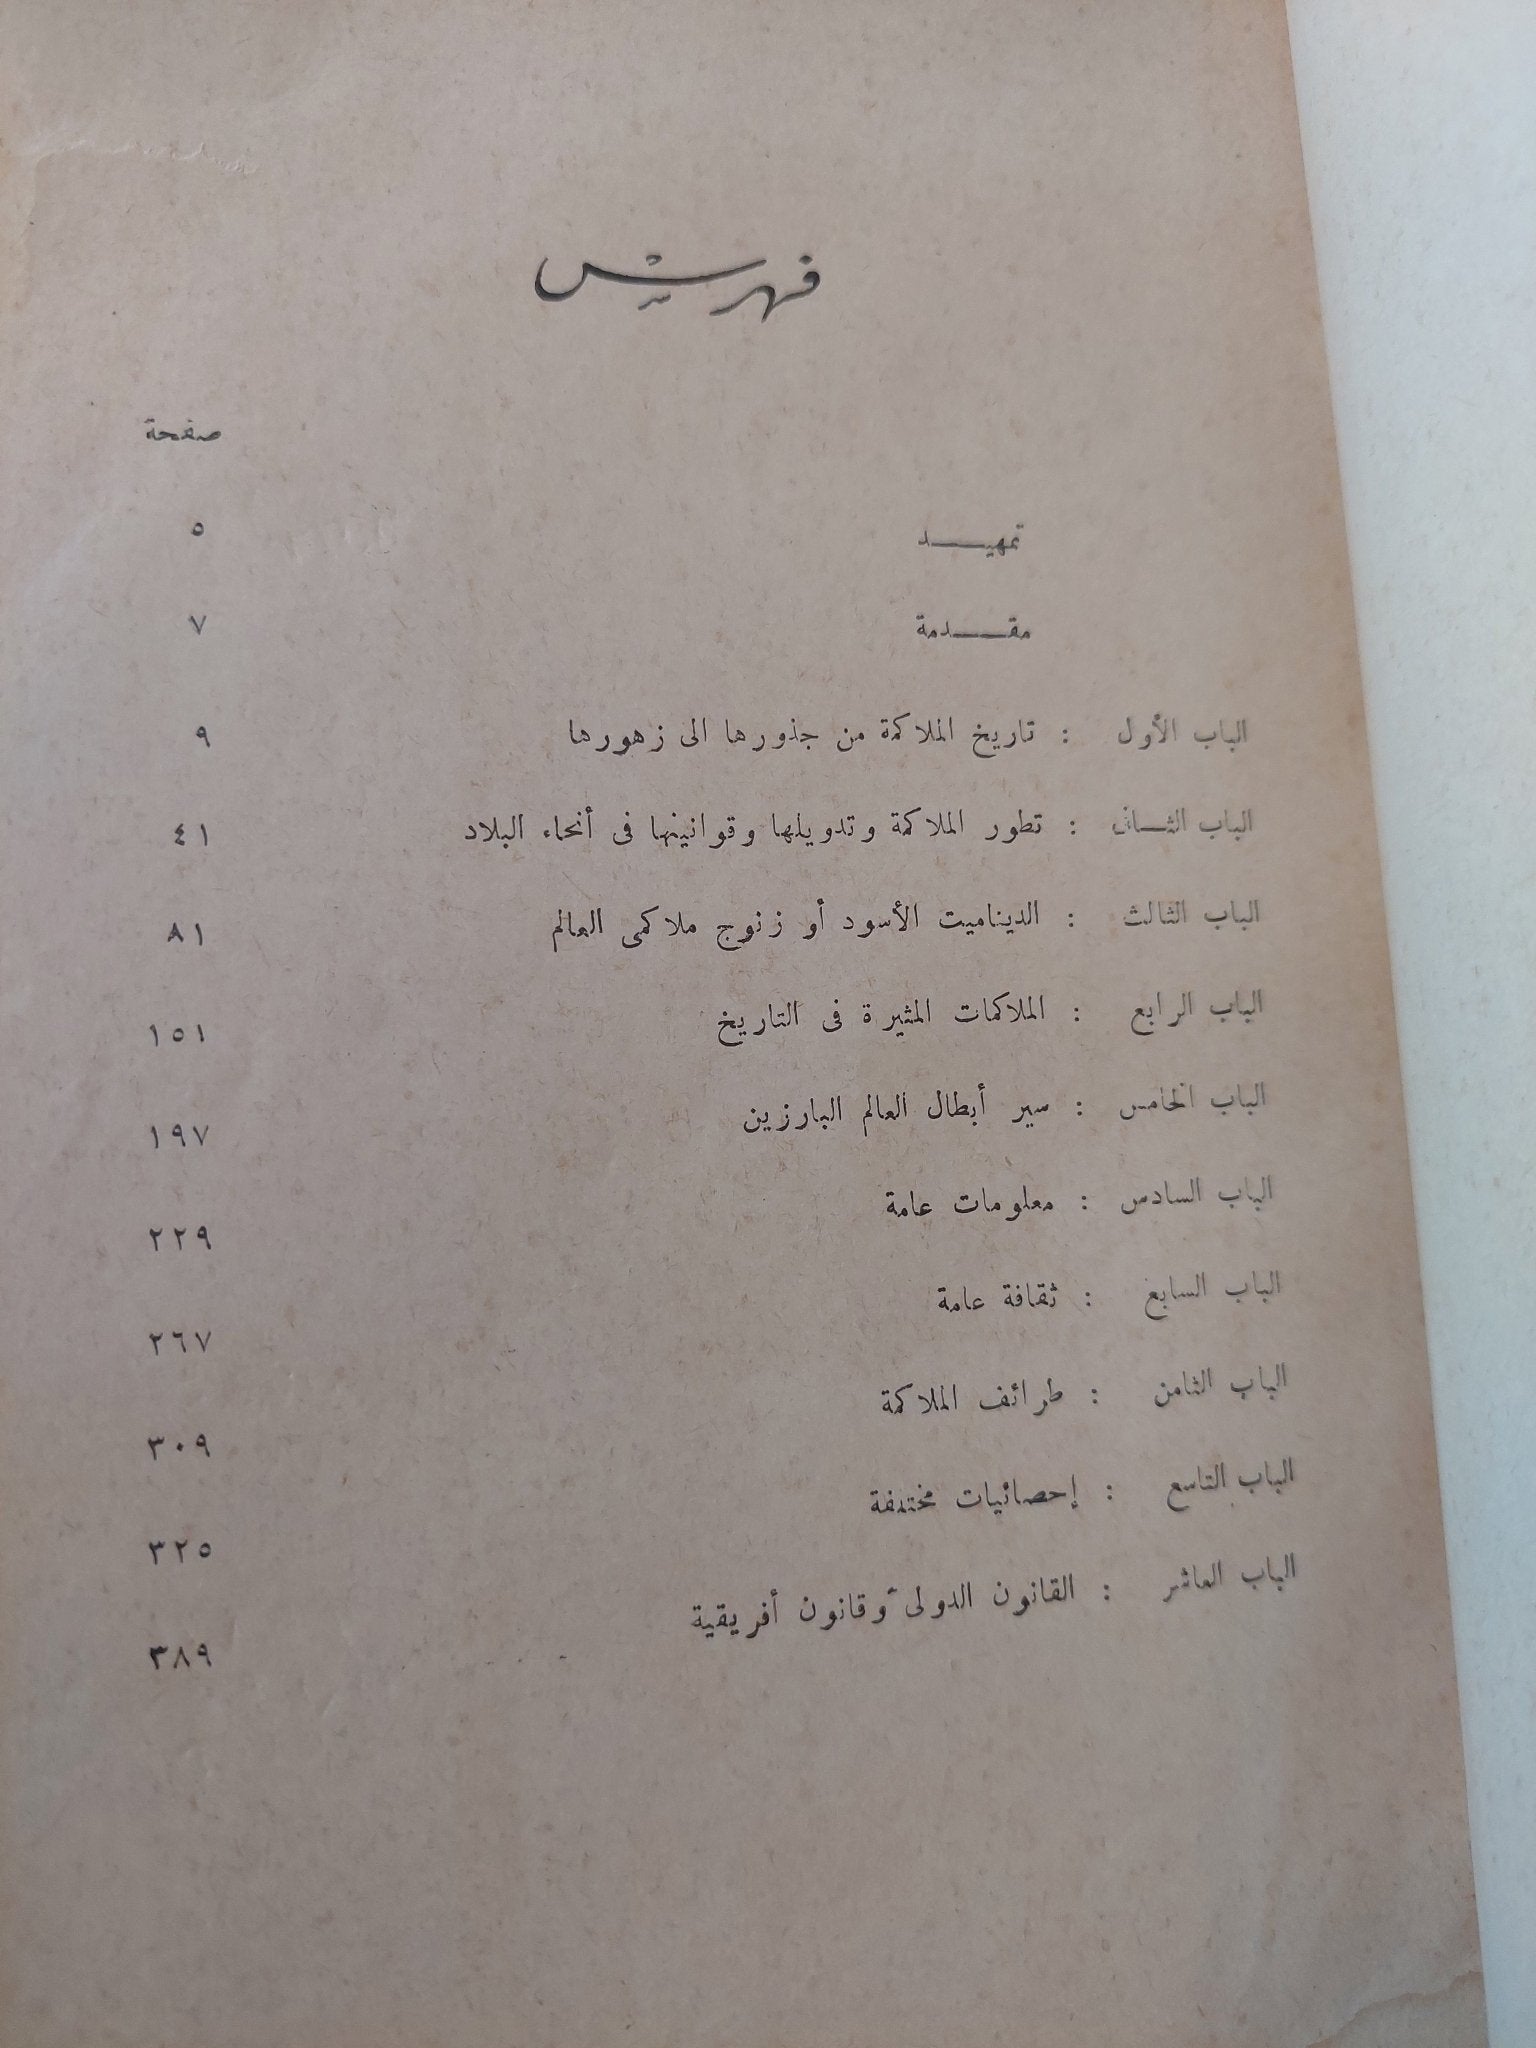 فهرس
صفحة
تمهيد ٥
مقدمة ٧
الباب الأول : تاريخ الملاكمة من جذورها الى زهورها ٩
الباب الثانى : تطور الملاكمة وتدويلها وقوانينها فى أنحاء البلاد ٤١
الباب الثالث : الديناميت الأسود أو زنوج ملاكمى العالم ٨١
الباب الرابع : الملاكمات المثيرة فى التاريخ ١٥١
الباب الخامس : سير أبطال العالم البارزين ١٩٧
الباب السادس : معلومات عامة ٢٢٩
الباب السابع : ثقافة عامة ٢٦٧
الباب الثامن : طرائف الملاكمة ٣٠٩
الباب التاسع : إحصائيات مختلفة ٣٢٥
الباب العاشر : القانون الدولى وقانون أفريقية ٣٨٩